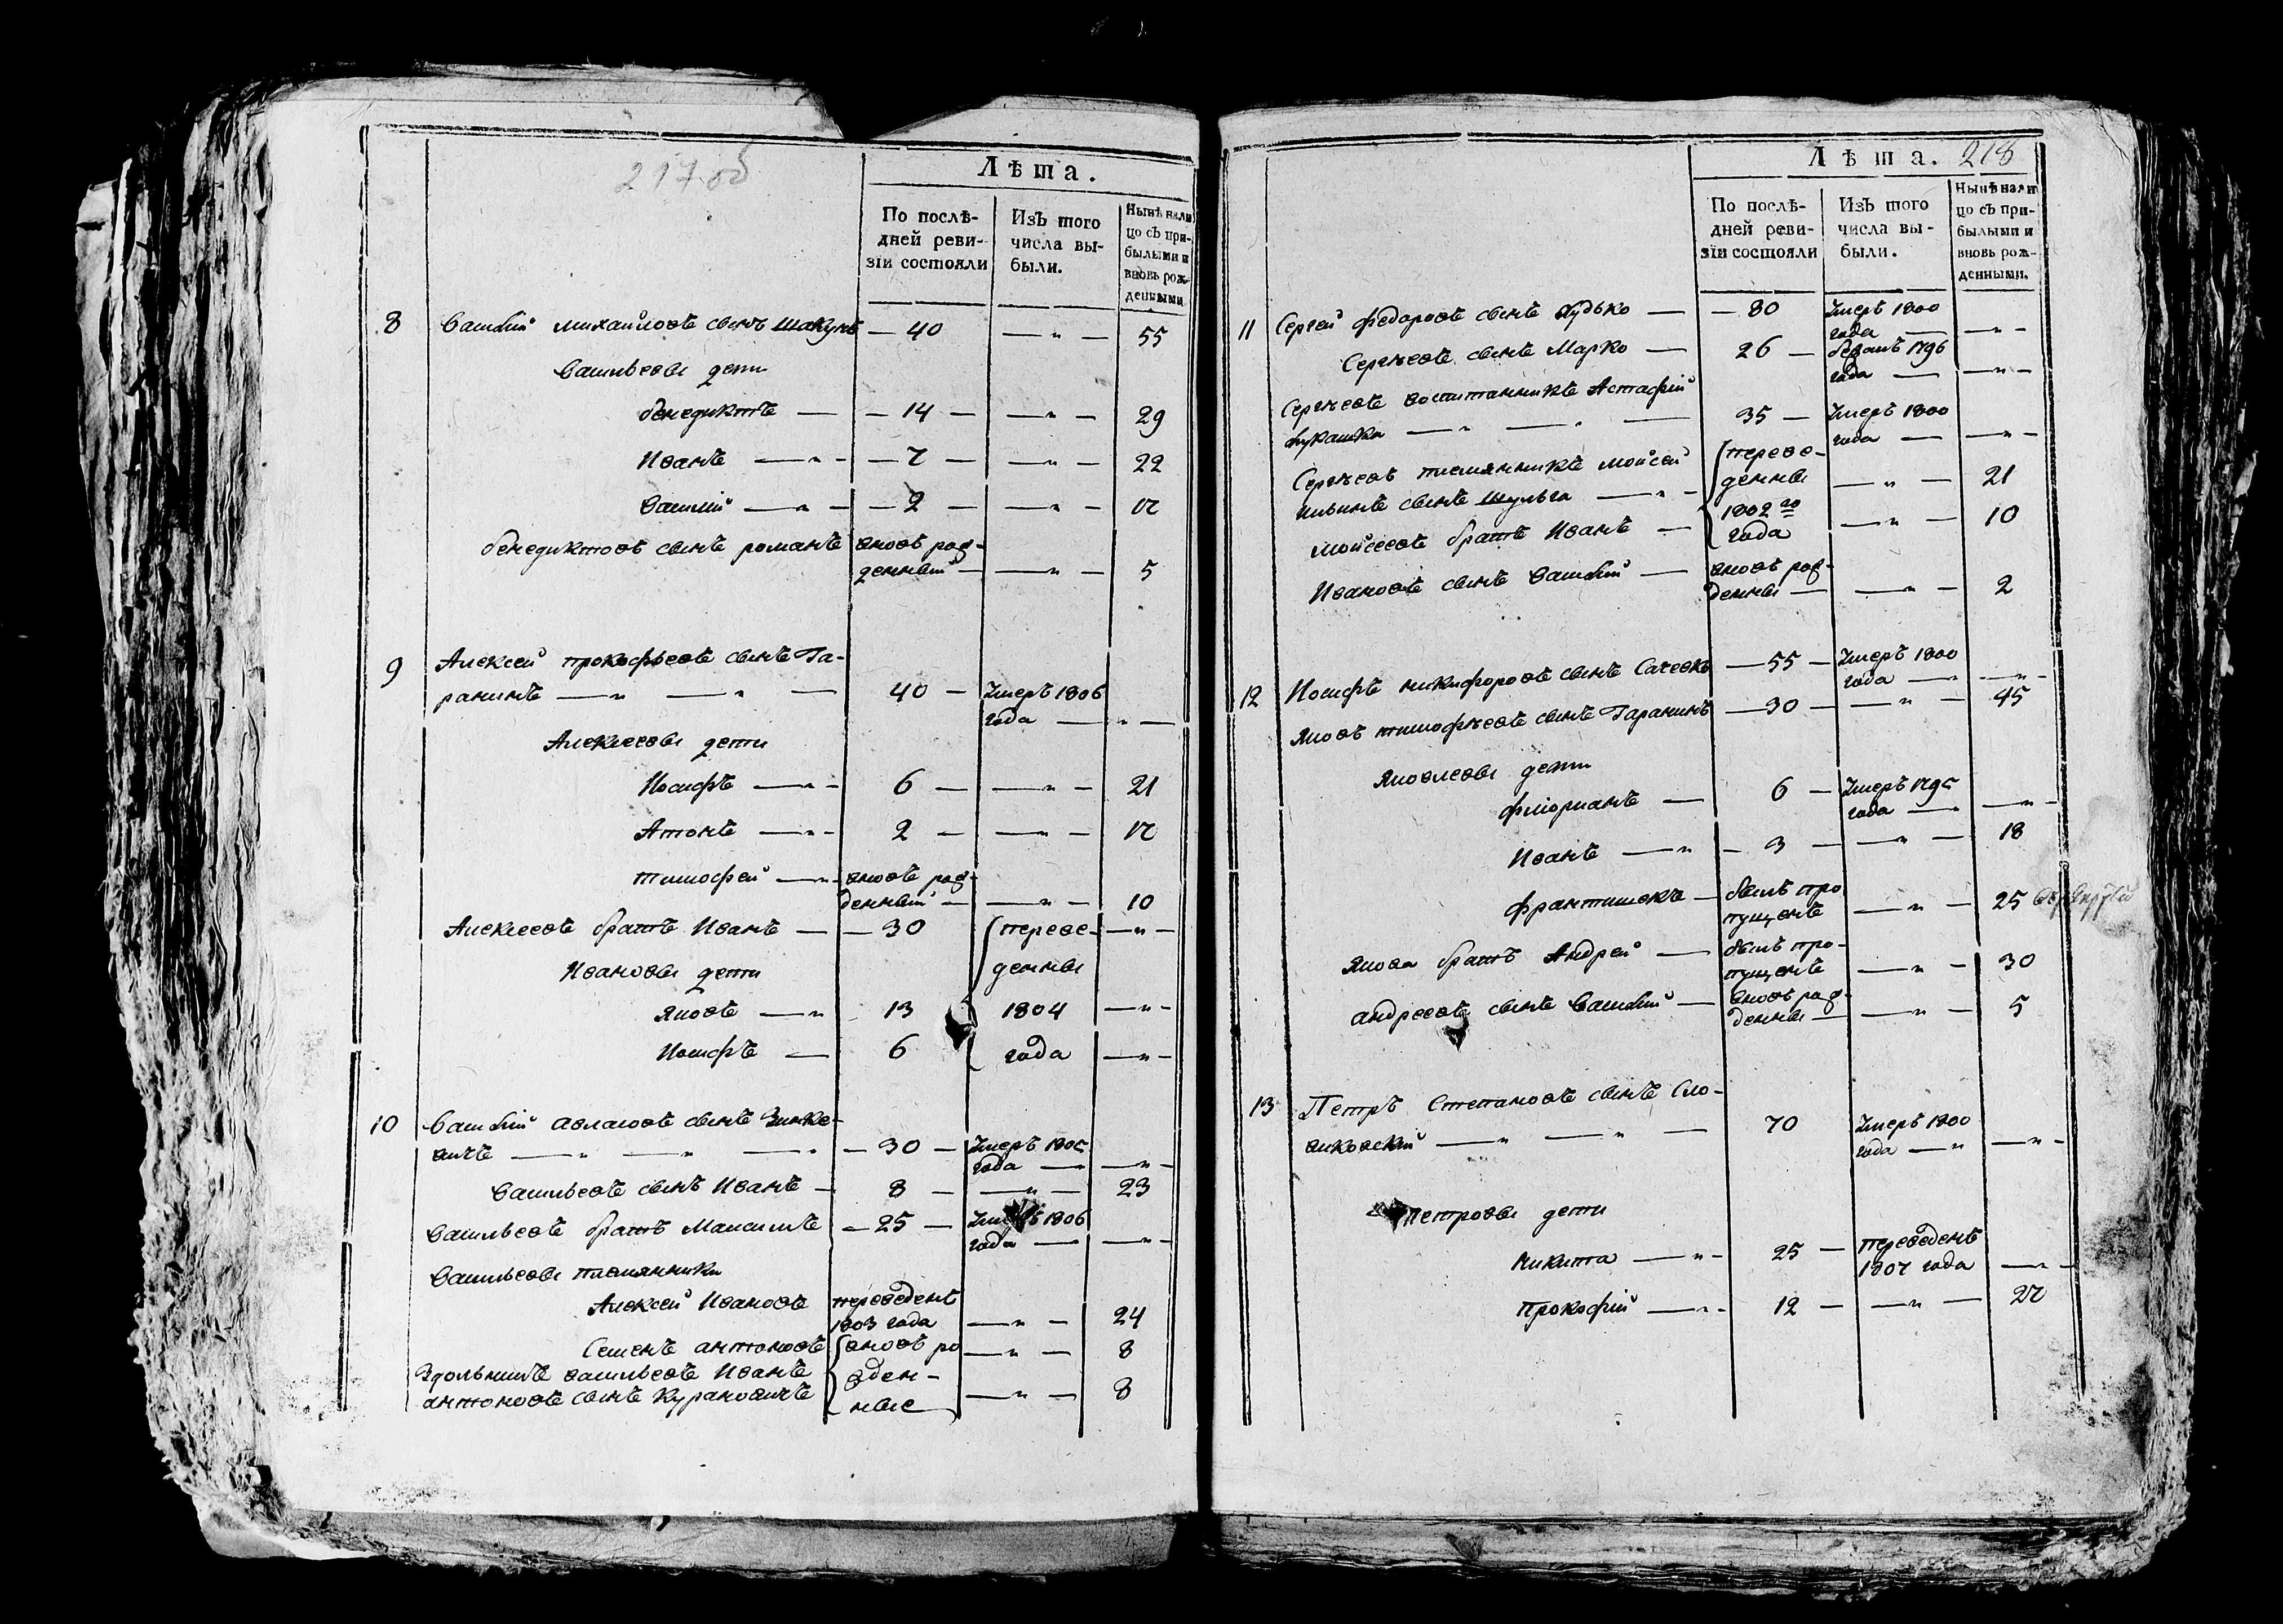 217 об
Лѣта.
По послѣ-
дней реви-
зіи состояли
Изъ того
числа вы-
были.
Нынѣ нали
цо съ при-
былыми и
вновь рож-
денными
8 Василий Михайловъ сынъ Шакунъ — 40 — „ — 55
Васильевы дети
бенедиктъ — — 14 — — „ — 29
Иванъ — „ — — 7 — — „ — 22
Василий — „ — — 2 — — „ — 17
бенедиктовъ сынъ романъ вновь рож-
денный — — „ — 5
9 Алексей прокофьевъ сынъ Га-
ранинъ — „ — „ — 40 — Умеръ 1806
года — „ —
Алексеевы дети
Иосифъ — „ — 6 — — „ — 21
Атонъ — „ — 2 — — „ — 17
тимофей — „ — вновь рож-
денный — — „ — 10
Алексеевъ братъ Иванъ — — 30 (переве- — „ —
Ивановы дети денны
Яковъ — „ 13 1804 — „ —
Иосифъ — 6 года — „ —
10 Василий авласовъ сынъ Зинке-
вичъ — „ — „ — „ — 30 — Умеръ 1805
года — — „ —
Васильевъ сынъ Иванъ — 8 — — „ — 23
Васильевъ братъ Максимъ — 25 — Умеръ 1806
года — — „ —
Васильевы племянники
Алексей Ивановъ переведенъ
1803 года — „ — 24
Семенъ антоновъ (вновь ро — „ — 8
Здольникъ васильевъ Иванъ жден-
антоновъ сынъ Курановичъ ные — „ — 8
Лѣта. 218
По послѣ-
дней реви-
зіи состояли
Изъ того
числа вы-
были.
Нынѣ нали
цо съ при-
былыми и
вновь рож-
денными.
11 Сергей федоровъ сынъ Лудько — — 80 Умеръ 1800
года — — „ —
Сергѣевъ сынъ Марко — 26 — бежалъ 1796
года — — „ —
Сергѣевъ воспитанникъ Астафий
Лукашка — „ — „ — 35 — Умеръ 1800
года — — „ —
Сергѣевъ племянникъ мойсей (переве-
ильинъ сынъ шульга — „ — денны — „ — 21
мойсеевъ братъ Иванъ — 1802го
года — „ — 10
Ивановъ сынъ Василий — вновь рож-
денны — — „ — 2
12 Иосифъ никифоровъ сынъ Сачевка — 55 — Умеръ 1800
года — — „ —
Яковъ тимофѣевъ сынъ Гаранинъ — 30 — — „ — 45
Яковлевы дети
флорианъ — 6 — Умеръ 1795
года — — „ —
Иванъ — „ — 3 — — „ — 18
франтишекъ — былъ про
пущенъ — „ — 25
Якова братъ Андрей — былъ про-
пущенъ — „ — 30
андреевъ сынъ Василий — вновь рож-
денны — — „ — 5
13 Петръ Степановъ сынъ Сло-
виковский — „ — „ — 70 Умеръ 1800
года — „ — „ —
петровы дети
никита — „ — 25 — переведенъ
1807 года — „ —
прокофий — „ — 12 — — „ — 27